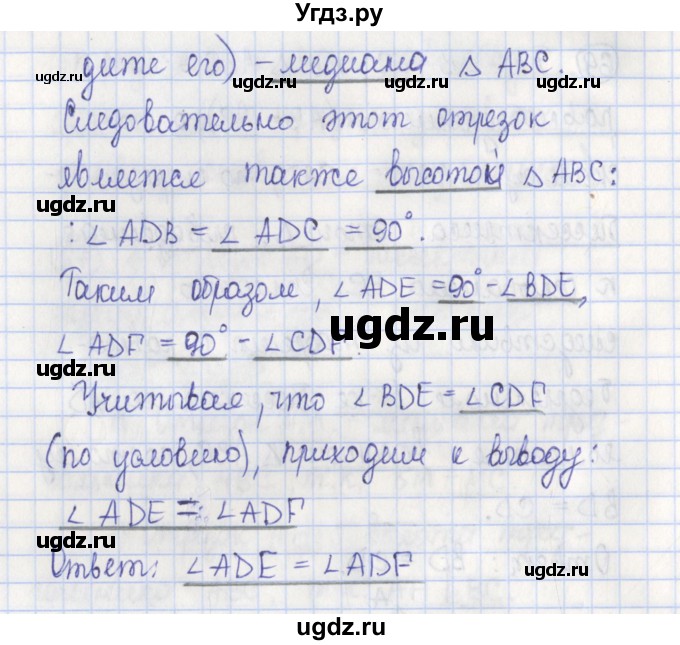 Угдз.ру
дите его) – медиана △ ABC.
Следовательно этот отрезок
является также высотой △ ABC:
: ∠ ADB = ∠ ADC = 90°.
Таким образом, ∠ ADE = 90° - ∠ BDE,
∠ ADF = 90° - ∠ CDF.
Учитывая, что ∠ BDE = ∠ CDF
(по условию), приходим к выводу:
∠ ADE = ∠ ADF
Ответ: ∠ ADE = ∠ ADF
ugdz.ru
ugdz.ru
ugdz.ru
ugdz.ru
ugdz.ru
ugdz.ru
ugdz.ru
ugdz.ru
ugdz.ru
ugdz.ru
ugdz.ru
ugdz.ru